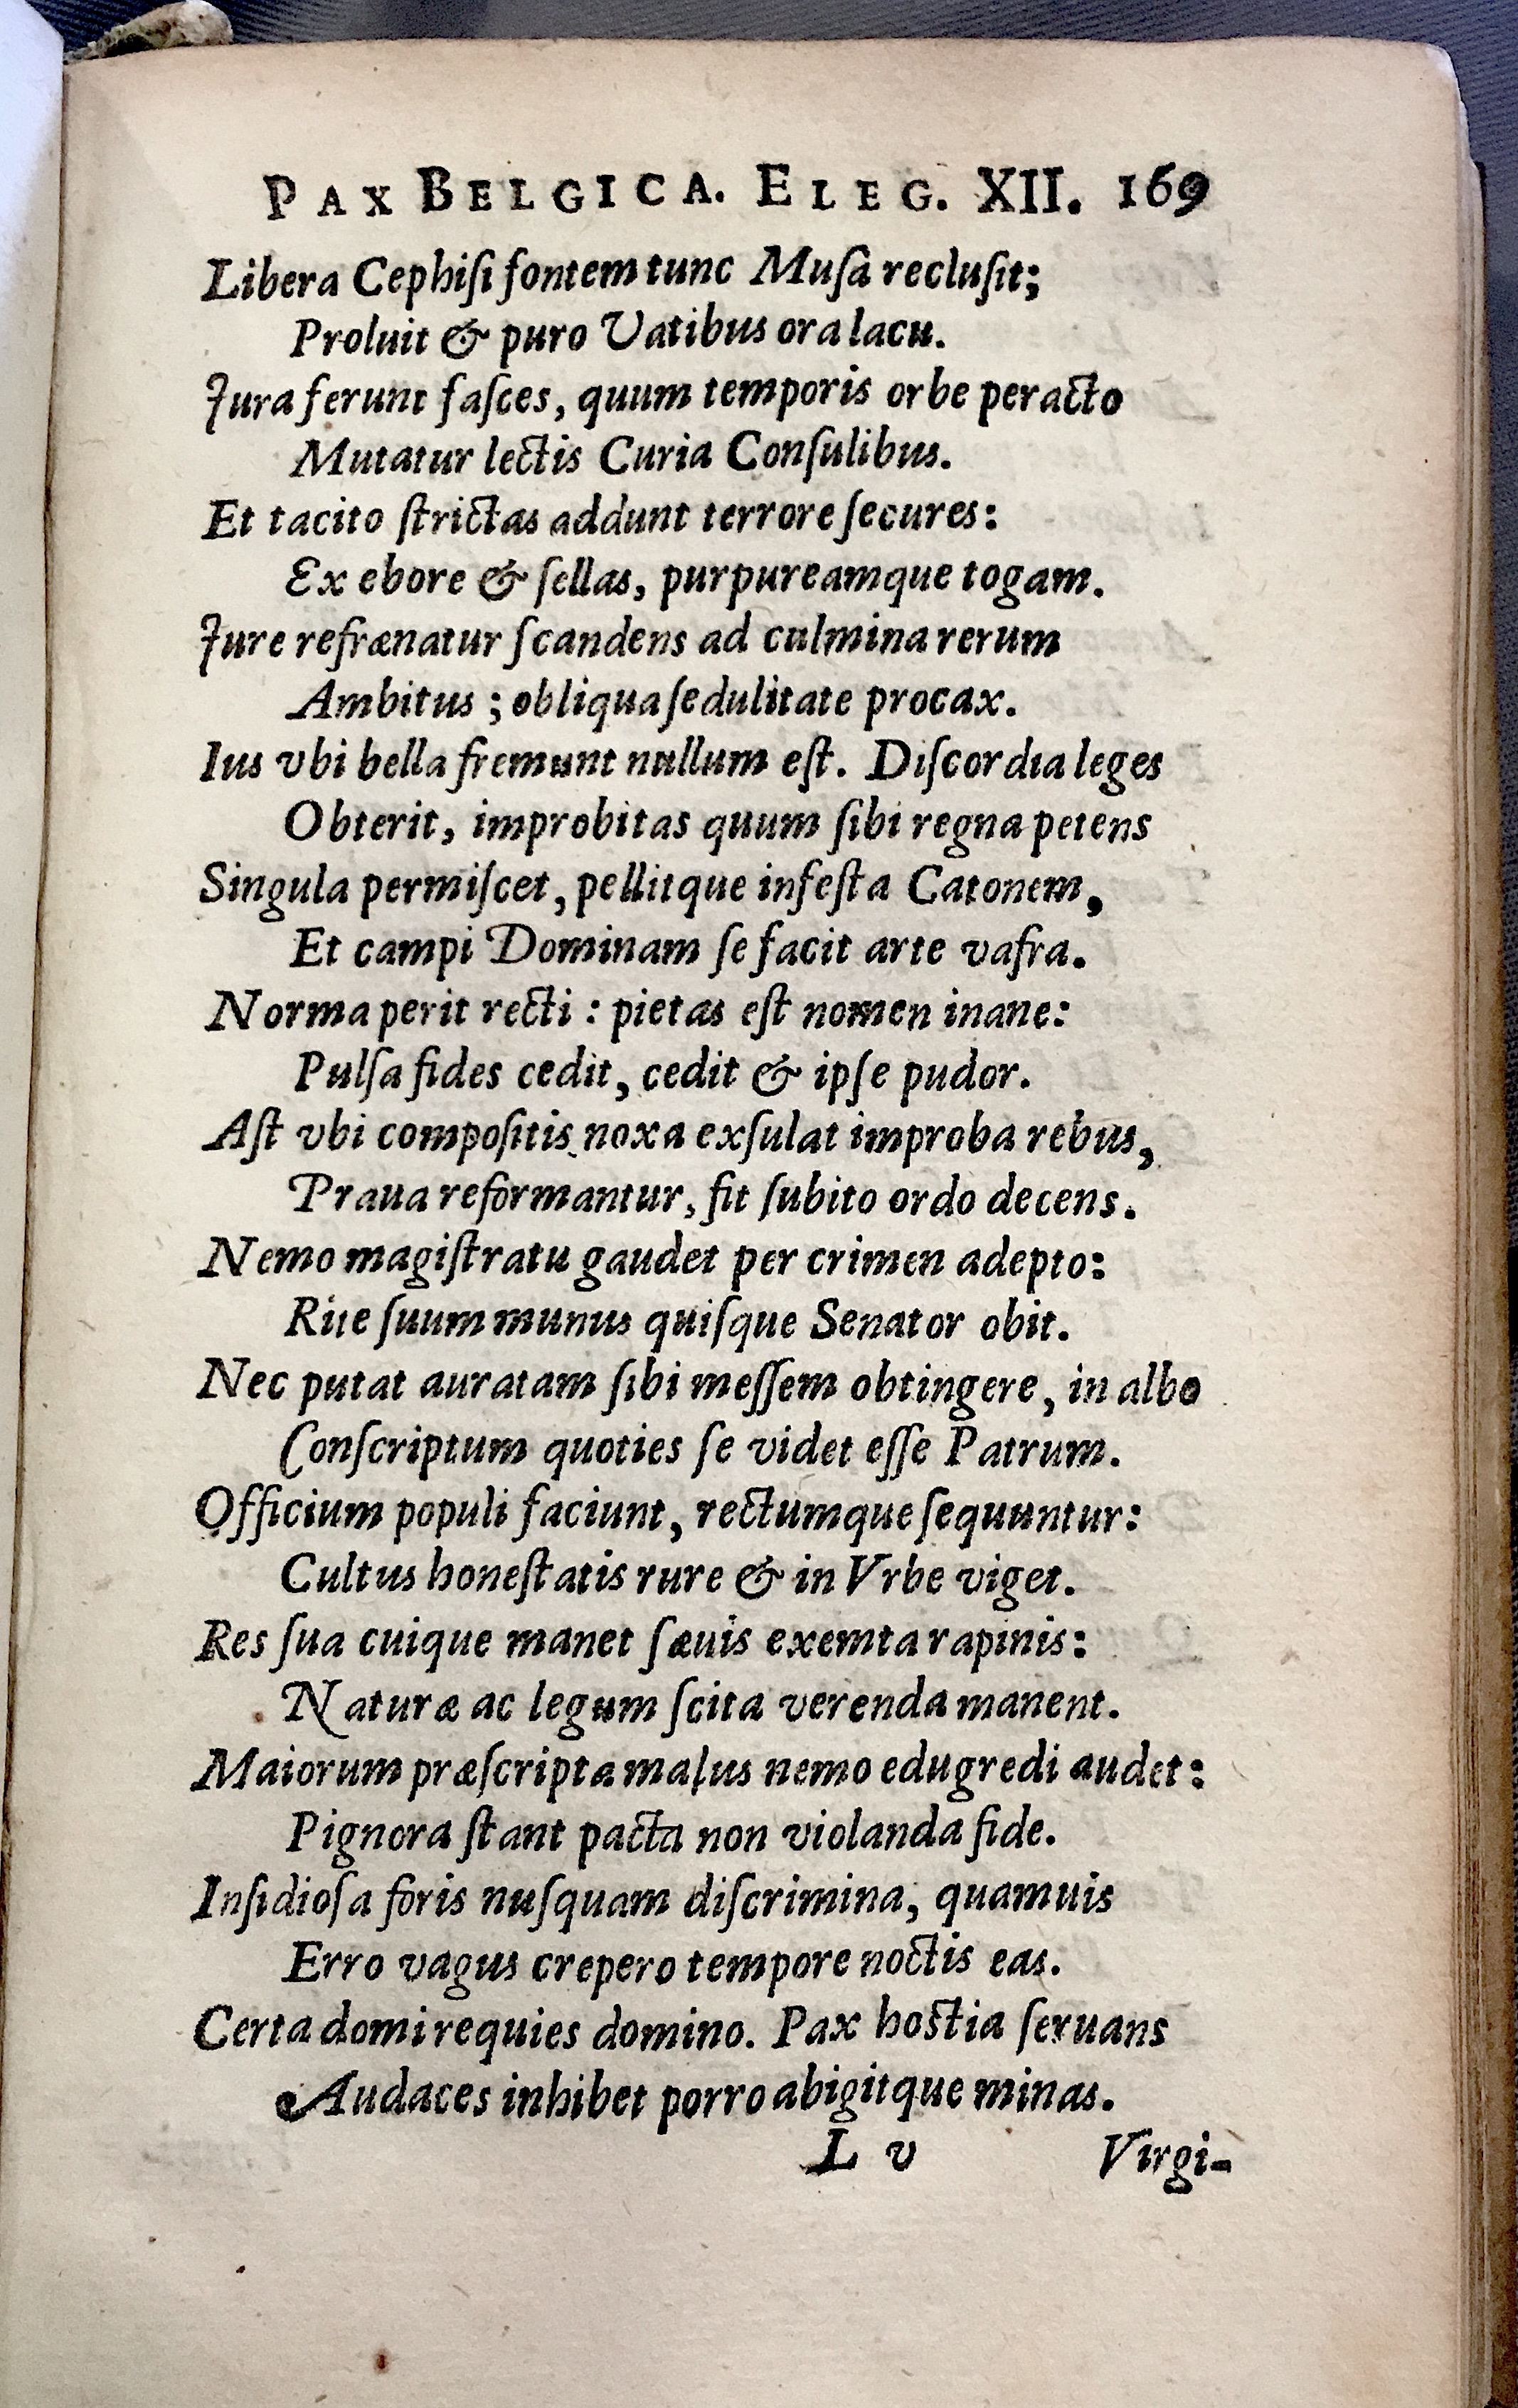 PAX BELGICA. ELEG. XII. 169
Libera Cephiſi fontem tunc Muſa recluſit;
Proluit & puro Vatibus ora lacu.
Jura ferunt faſces, quum temporis orbe peracto
Mutatur lectis Curia Conſulibus.
Et tacito ſtrictas addunt terrore ſecures:
Ex ebore & ſellas, purpureamque togam.
Jure refrænatur ſcandens ad culmina rerum
Ambitus; obliqua ſedulitate procax.
Ius vbi bella fremunt nullum eſt. Diſcordia leges
Obterit, improbitas quum ſibi regna petens
Singula permiſcet, pellitque infeſta Catonem,
Et campi Dominam ſe facit arte vafra.
Norma perit recti: pietas eſt nomen inane:
Pulſa fides cedit, cedit & ipſe pudor.
Aſt vbi compoſitis noxa exſulat improba rebus,
Praua reformantur, fit ſubito ordo decens.
Nemo magiſtratu gaudet per crimen adepto:
Rite ſuum munus quiſque Senator obit.
Nec putat auratam ſibi meſſem obtingere, in albo
Conſcriptum quoties ſe videt eſſe Patrum.
Officium populi faciunt, rectumque ſequuntur:
Cultus honeſtatis rure & in Vrbe viget.
Res ſua cuique manet ſæuis exemta rapinis:
Naturæ ac legum ſcita verenda manent.
Maiorum præſcripta maſus nemo edugredi audet:
Pignora ſtant pacta non violanda fide.
Inſidioſa foris nuſquam diſcrimina, quamuis
Erro vagus crepero tempore noctis eas.
Certa domi requies domino. Pax hoſtia ſeruans
Audaces inhibet porro abigitque minas.
L v
Virgi-